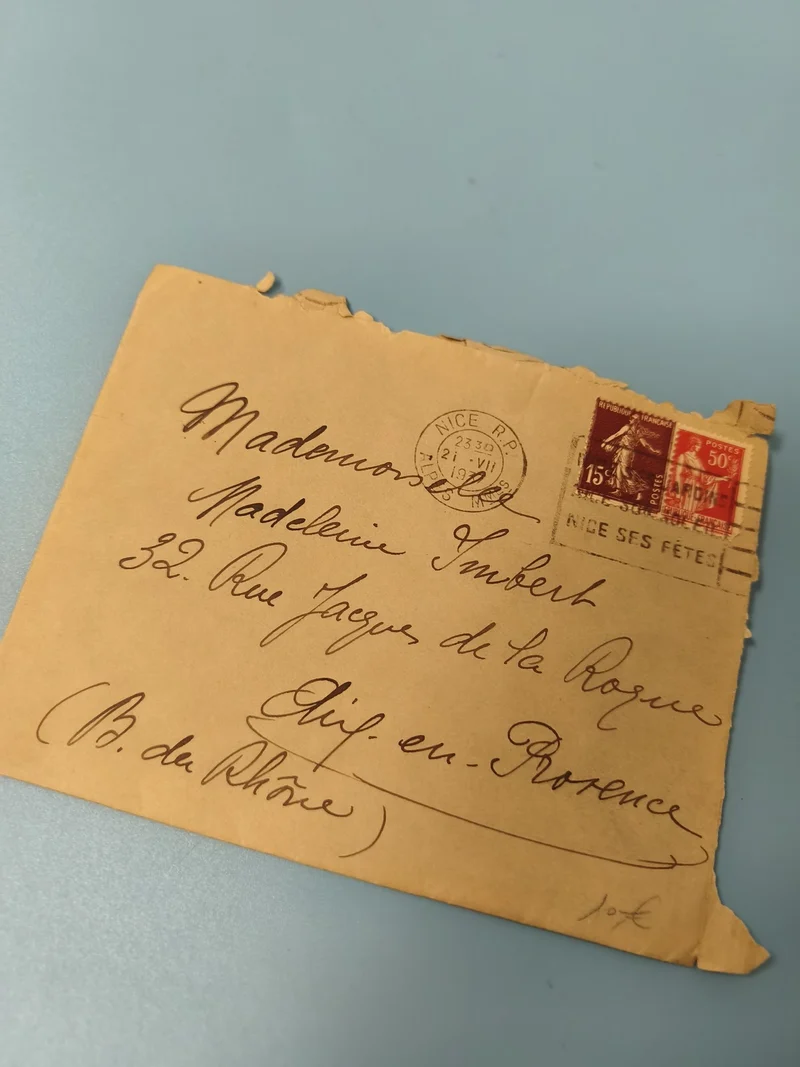 Mademoiselle
Madeleine Imbert
32. Rue Jacques de la Roque
Aix-en-Provence
(B. du Rhône)
NICE R.P.
23 30
21 -VII
ALPES MMES
REPUBLIQUE FRANÇAISE
15c
POSTES
POSTES
50c
NICE SES FÊTES
10€